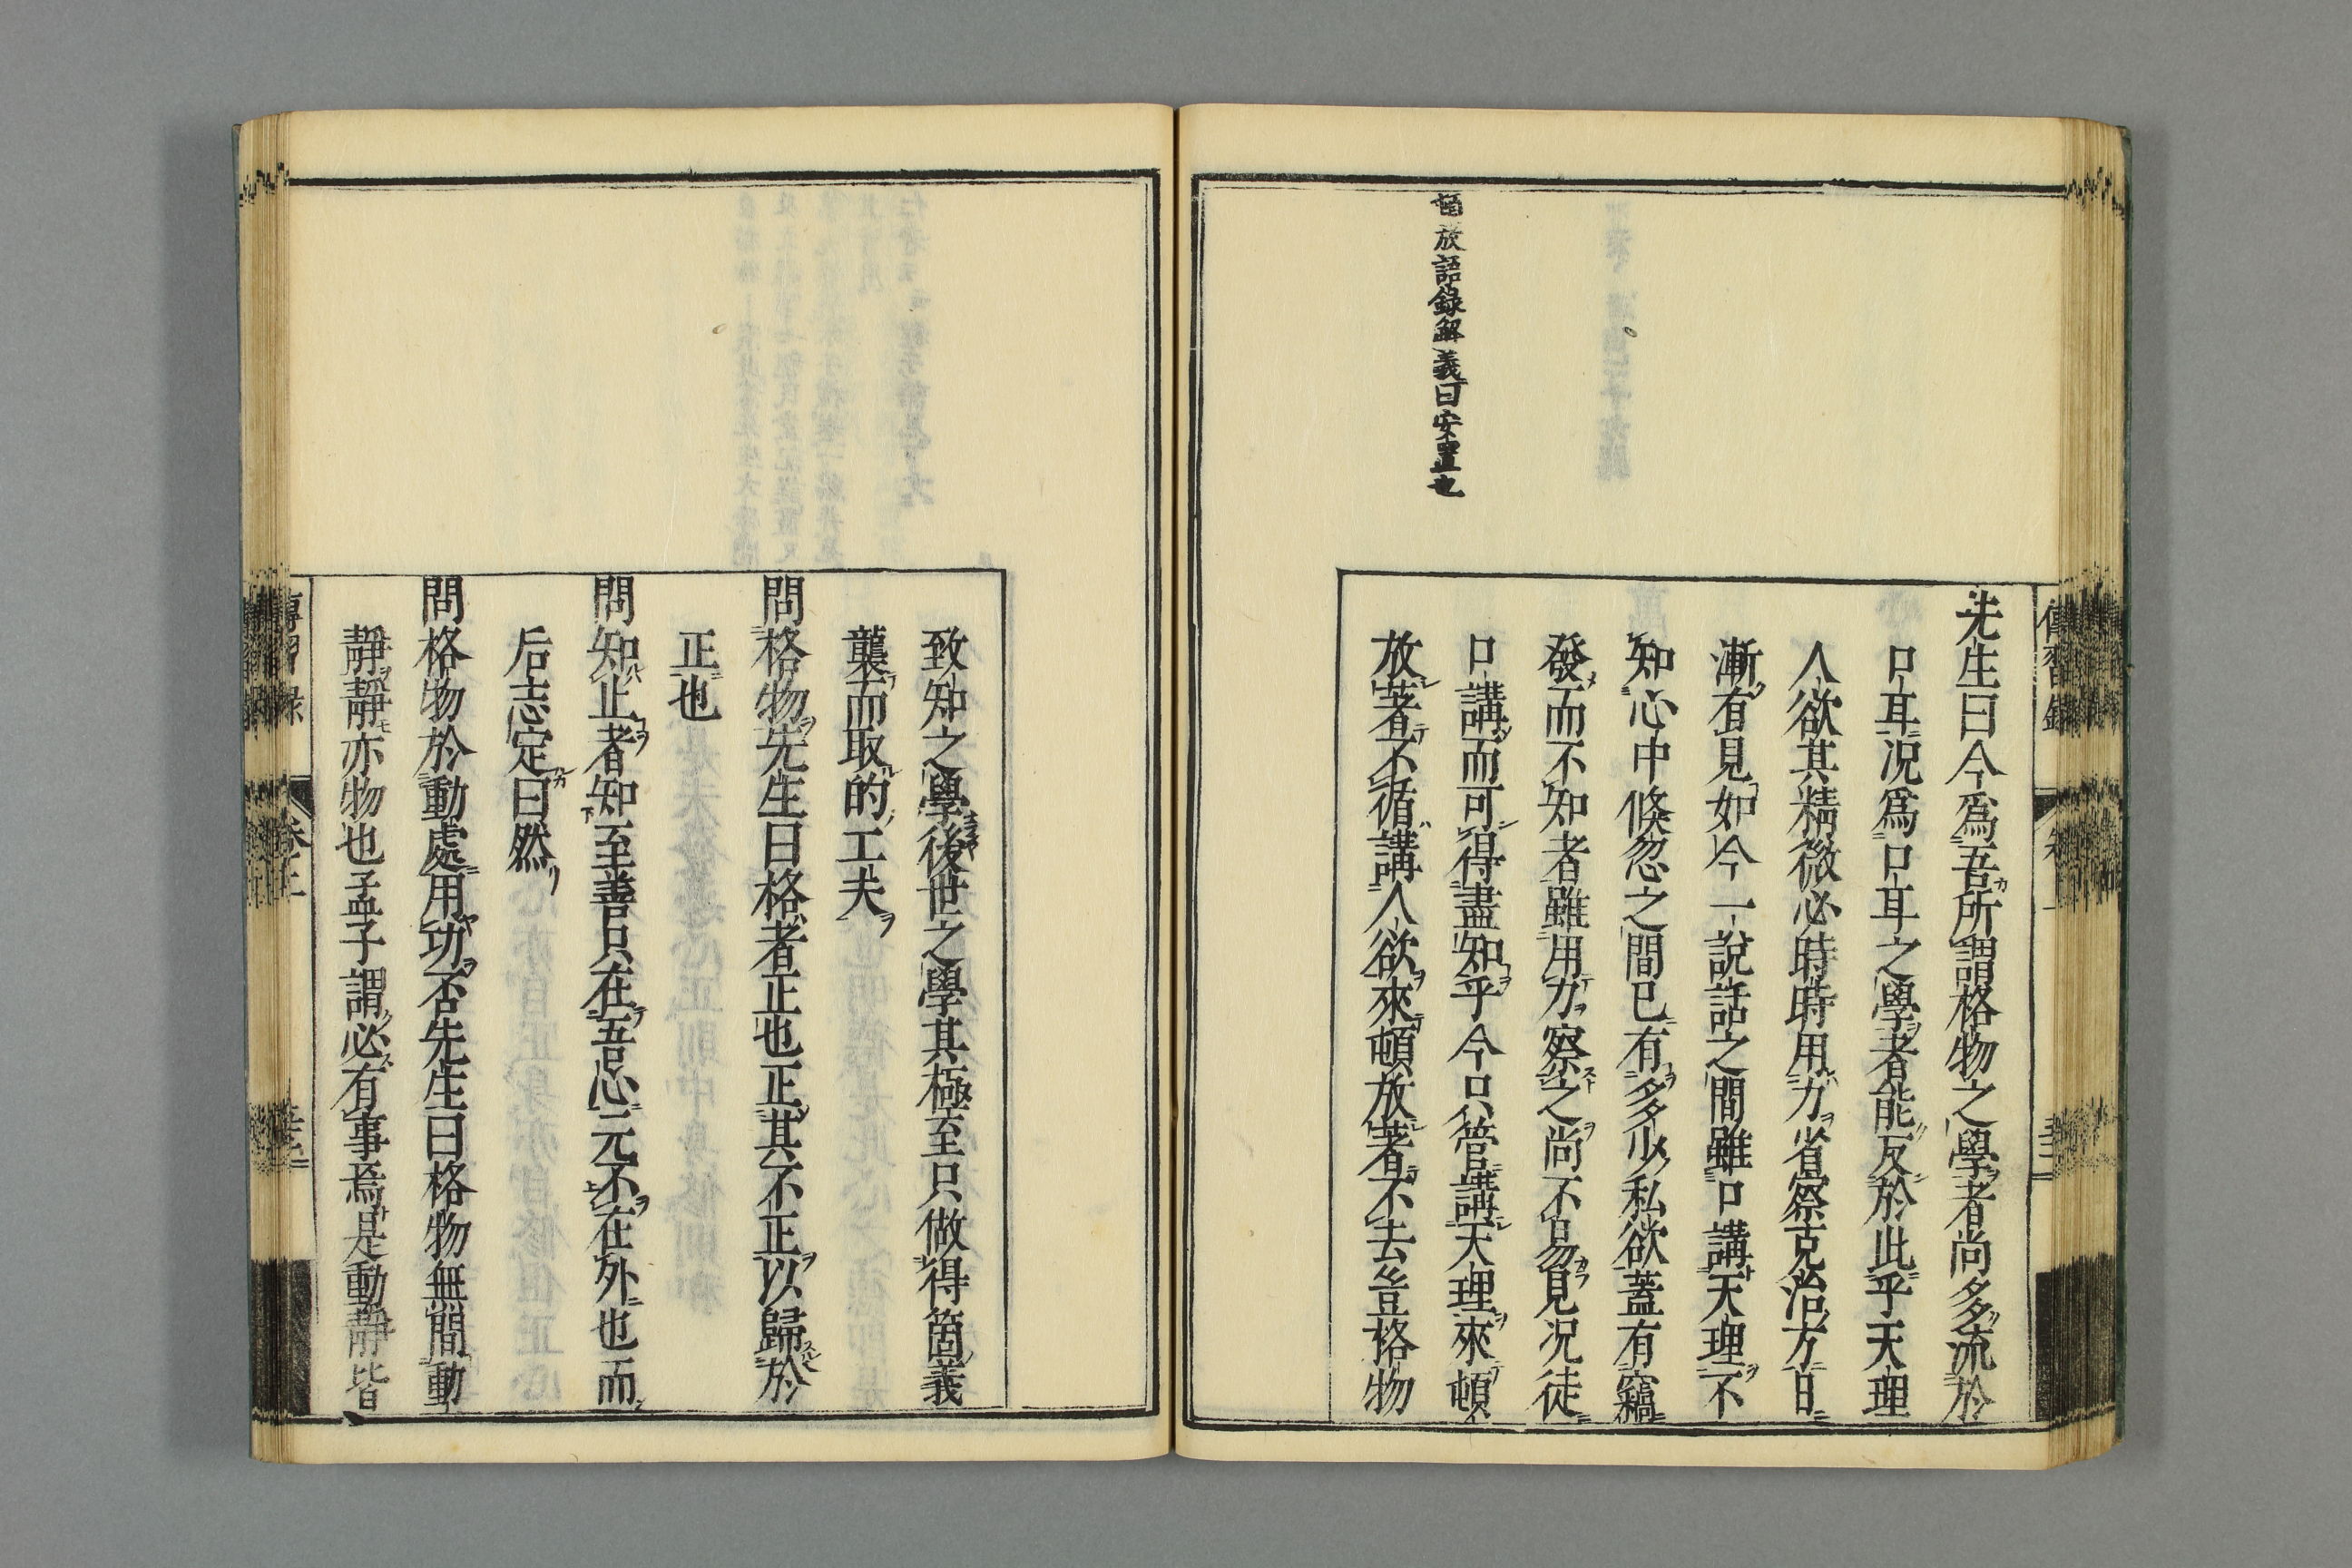 頓放語錄解義曰安置也
先生曰今爲吾所謂格物之學者尚多流於
口耳況爲口耳之學者能反於此乎天理
人欲其精微必時時用力省察克治方日
漸有見如今一說話之間雖口講天理不
知心中倏忽之間已有多少私欲蓋有竊
發而不知者雖用力察之尚不易見況徒
口講而可得盡知乎今只管講天理來頓
放著不循講人欲來頓放著不去豈格物
致知之學後世之學其極至只做得箇義
襲而取的工夫
問格物先生曰格者正也正其不正以歸於
正也
問知止者知至善只在吾心元不在外也而
后志定曰然
問格物於動處用功否先生曰格物無間動
靜靜亦物也孟子謂必有事焉是動靜皆
傳習錄
卷上